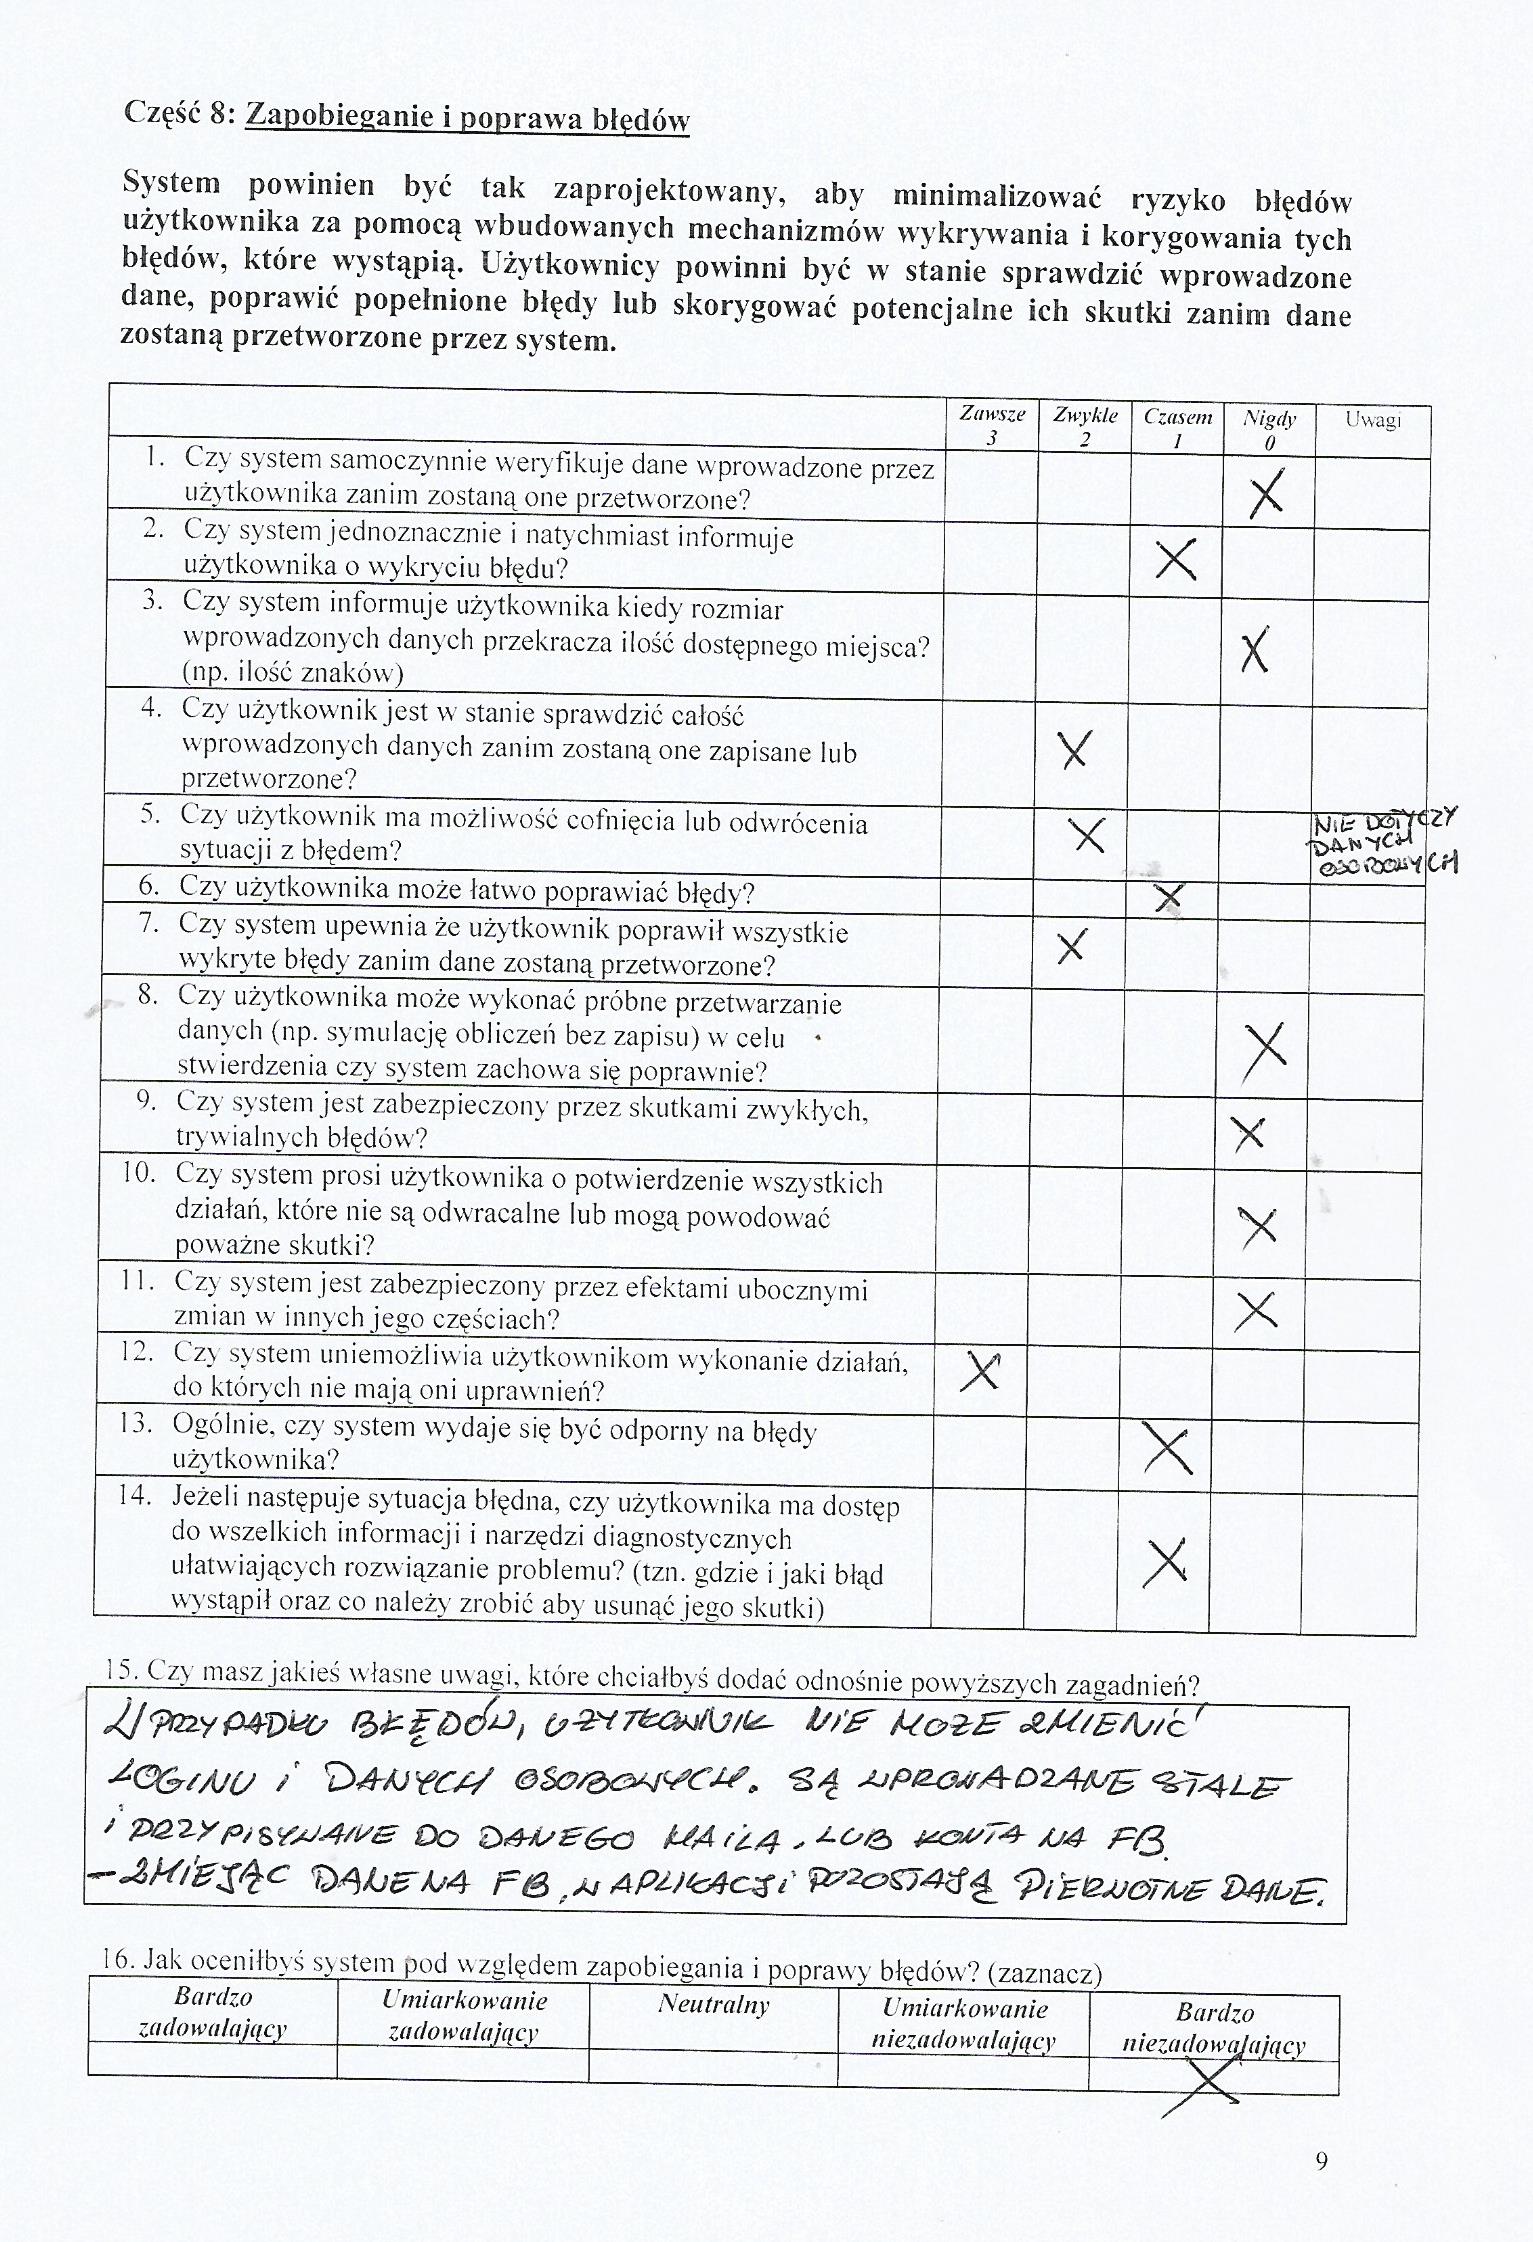 Część 8: Zapobieganie i poprawa błędów
System powinien być tak zaprojektowany, aby minimalizować ryzyko błędów
użytkownika za pomocą wbudowanych mechanizmów wykrywania i korygowania tych
błędów, które wystąpią. Użytkownicy powinni być w stanie sprawdzić wprowadzone
dane, poprawić popełnione błędy lub skorygować potencjalne ich skutki zanim dane
zostaną przetworzone przez system.
Zawsze Zwykle Czasem Nigdy Uwagi
3 2 1 0
1. Czy system samoczynnie weryfikuje dane wprowadzone przez
użytkownika zanim zostaną one przetworzone? X
2. Czy system jednoznacznie i natychmiast informuje
użytkownika o wykryciu błędu? X
3. Czy system informuje użytkownika kiedy rozmiar
wprowadzonych danych przekracza ilość dostępnego miejsca? X
(np. ilość znaków)
4. Czy użytkownik jest w stanie sprawdzić całość
wprowadzonych danych zanim zostaną one zapisane lub X
przetworzone?
5. Czy użytkownik ma możliwość cofnięcia lub odwrócenia X NIE DOTYCZY
sytuacji z błędem? DANYCH
OSOBOWYCH
6. Czy użytkownika może łatwo poprawiać błędy? X
7. Czy system upewnia że użytkownik poprawił wszystkie X
wykryte błędy zanim dane zostaną przetworzone?
8. Czy użytkownika może wykonać próbne przetwarzanie
danych (np. symulację obliczeń bez zapisu) w celu X
stwierdzenia czy system zachowa się poprawnie?
9. Czy system jest zabezpieczony przez skutkami zwykłych,
trywialnych błędów? X
10. Czy system prosi użytkownika o potwierdzenie wszystkich
działań, które nie są odwracalne lub mogą powodować X
poważne skutki?
11. Czy system jest zabezpieczony przez efektami ubocznymi
zmian w innych jego częściach? X
12. Czy system uniemożliwia użytkownikom wykonanie działań, X
do których nie mają oni uprawnień?
13. Ogólnie, czy system wydaje się być odporny na błędy X
użytkownika?
14. Jeżeli następuje sytuacja błędna, czy użytkownika ma dostęp
do wszelkich informacji i narzędzi diagnostycznych
ułatwiających rozwiązanie problemu? (tzn. gdzie i jaki błąd X
wystąpił oraz co należy zrobić aby usunąć jego skutki)
15. Czy masz jakieś własne uwagi, które chciałbyś dodać odnośnie powyższych zagadnień?
W PRZYPADKU BŁĘDÓW, UŻYTKOWNIK NIE MOŻE ZMIENIĆ
LOGINU I DANYCH OSOBOWYCH. SĄ WPROWADZANE STALE
I PRZYPISYWANE DO DANEGO MAILA, LUB KONTA NA FB.
– ZMIEJĄC DANE NA FB, W APLIKACJI POZOSTAJĄ PIERWOTNE DANE.
16. Jak oceniłbyś system pod względem zapobiegania i poprawy błędów? (zaznacz)
Bardzo Umiarkowanie Neutralny Umiarkowanie Bardzo
zadowalający zadowalający niezadowalający niezadowalający
X
9